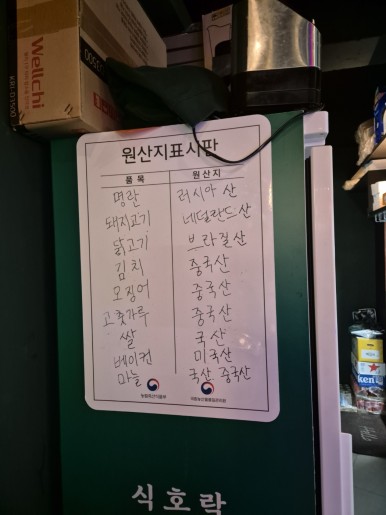 Wellchi
원산지표시판
품목 원산지
명란 러시아 산
돼지고기 네덜란드산
닭고기 브라질산
김치 중국산
오징어 중국산
고춧가루 중국산
쌀 국산
베이컨 미국산
마늘 국산 중국산
농림축산식품부 국립농산물품질관리원
식호락